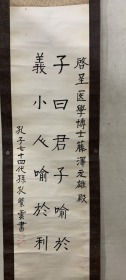 啓呈医学博士藤澤正雄殿
子曰君子喻於
義小人喻於利
孔子七十四代孫孔繁雲書